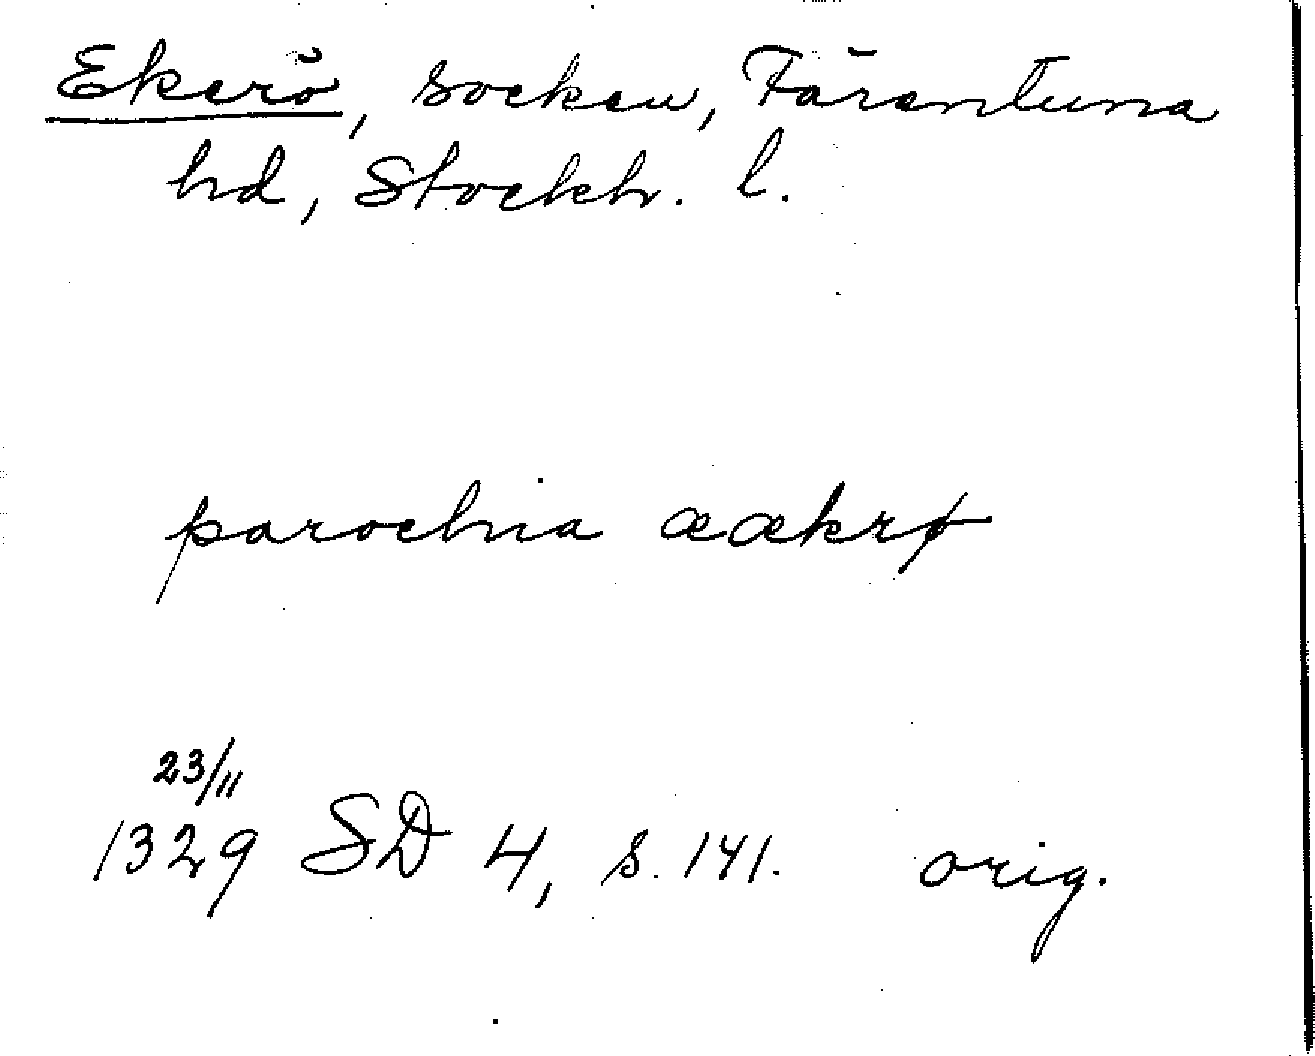 Ekerö, socken, Färentuna
hd, Stockh. l.
parochia ææekrø
23/11
1329 SD 4, s. 141. orig.